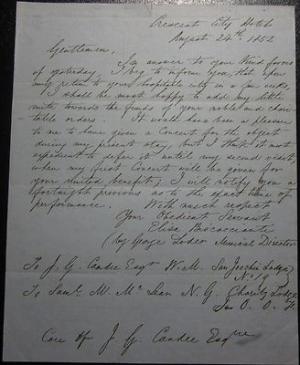 Crescent City Hotel
August 24th, 1852
Gentlemen,
In answer to your kind favor
of yesterday, I beg to inform you that upon
my return to your hospitable city in a few weeks,
I shall be most happy to add my little
mite towards the funds of your noble and chari-
table orders. It would have been a pleasure
to me to have given a Concert for the object
during my present stay, but I think it most
expedient to defer it until my second visit,
when my first Concert will be given for
your united benefits; I will notify you a
fortnight previous as to the exact time of
performance. With much respect
Your Obedient Servant
Elisa Biscaccianti
(by George Loder Musical Director
To J. G. Candee Esqr W. M. San Jacinto Lodge
No 19
To Saml. M. McLean N. G. Charity Lodge
I. O. O. F.
Care of J G. Candee Esqre